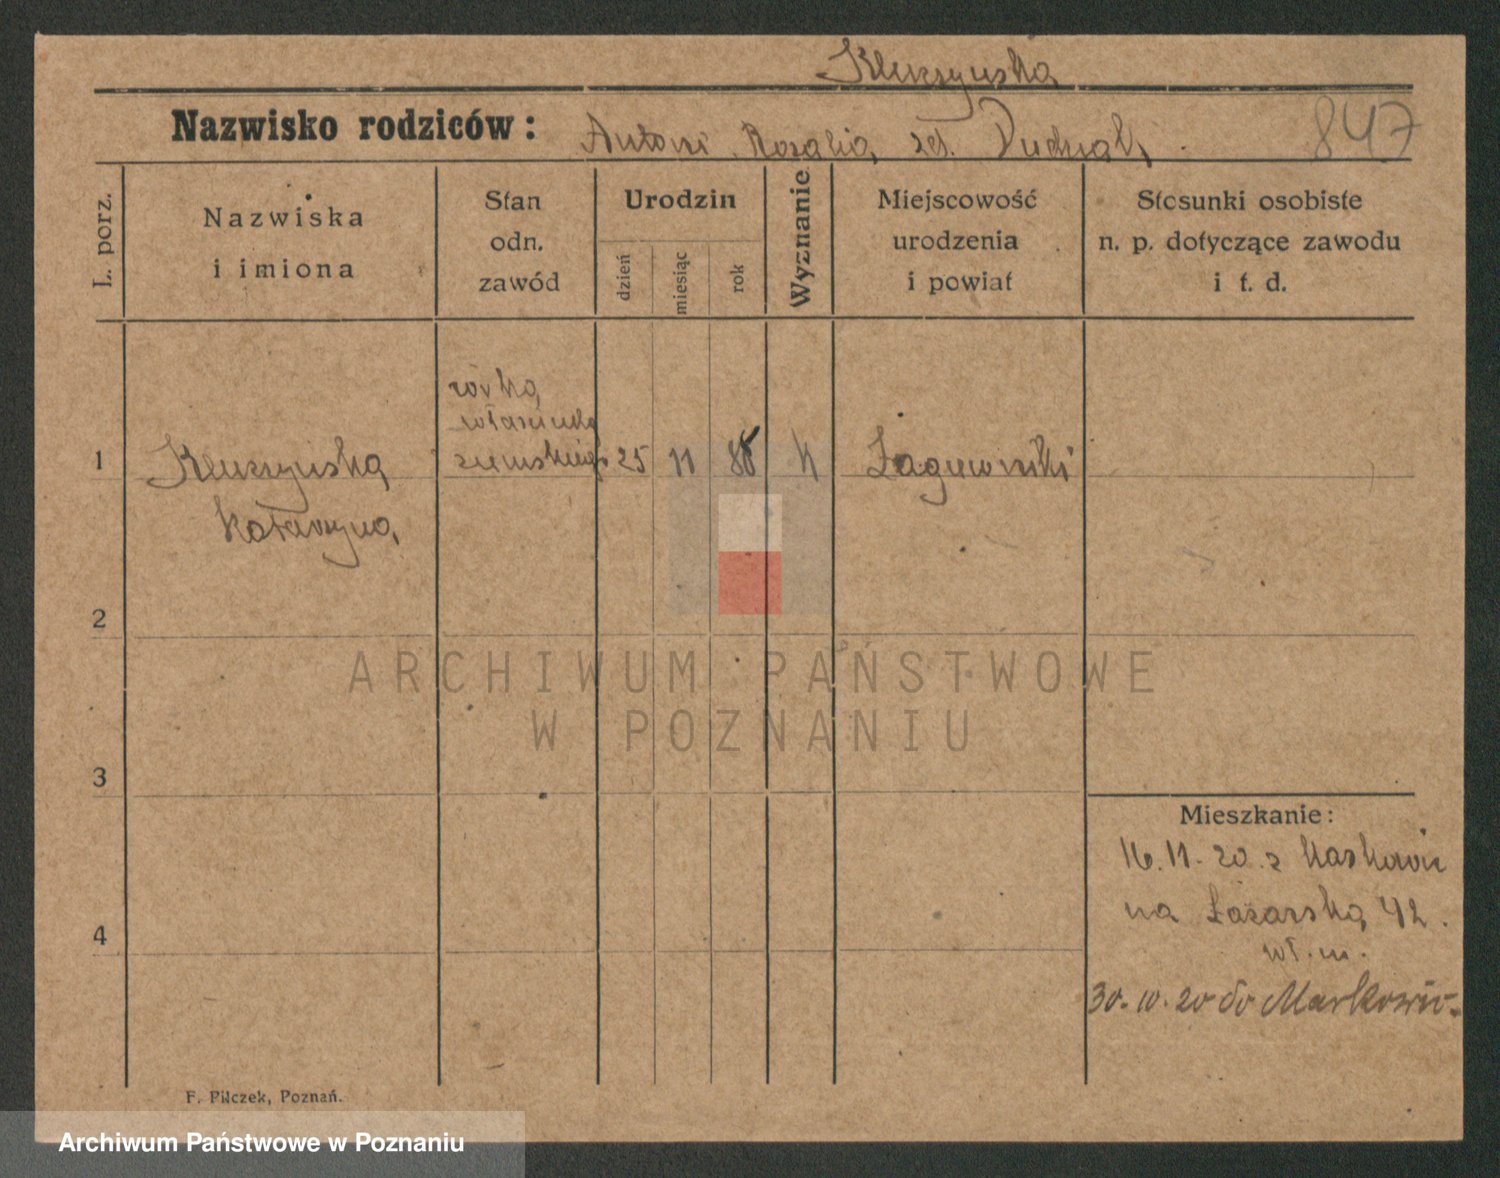 Kluczyńska
Nazwisko rodziców:
Antoni Rozalia 847
L. porz.
Nazwiska
i imiona
Stan
odn.
zawód
Urodzin
dzień
miesiąc
rok
Wyznanie
Miejscowość
urodzenia
i powiat
Stosunki osobiste
n. p. dotyczące zawodu
i t. d.
córka
ziemskiego
1 25 11 k Łagiewniki
Katarzyna
2
ARCHIWUM PAŃSTWOWE
W POZNANIU
3
Mieszkanie:
16.11.20. z
na Łazarską 42.
wł. m.
4
30.10.20 do Markowic
F. Pilczek, Poznań.
Archiwum Państwowe w Poznaniu